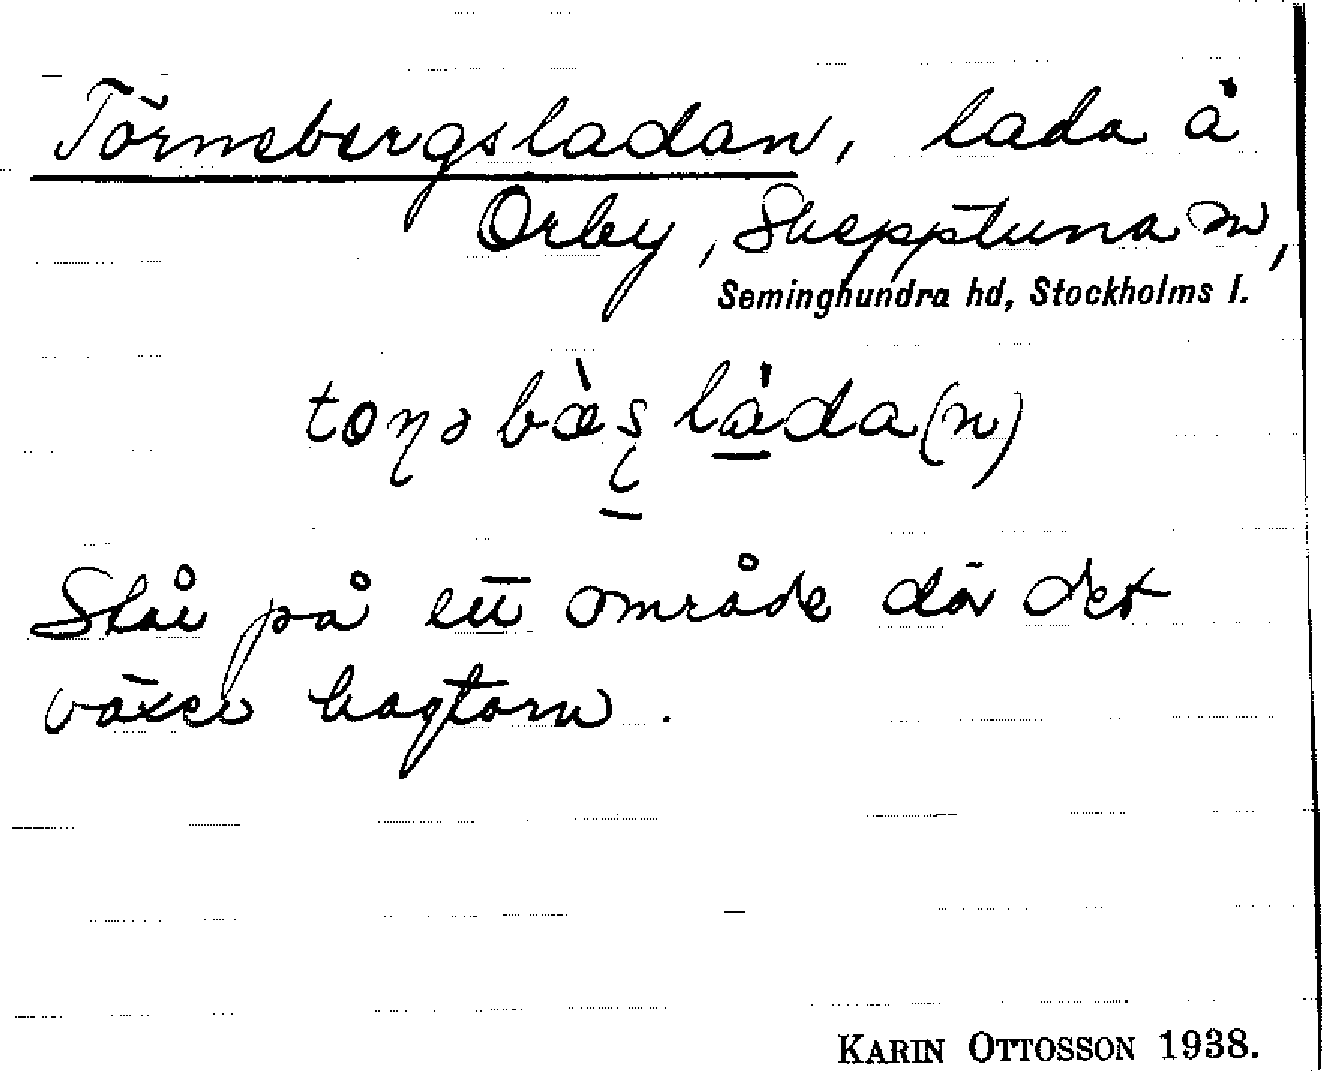 Törnebergsladan, lada å
Orby, Skepptuna sn,
Seminghundra hd, Stockholms l.
toɳəbæ̀ʂlȧda(n)
Står på ett område där det
växer hagtorn.
KARIN OTTOSSON 1938.